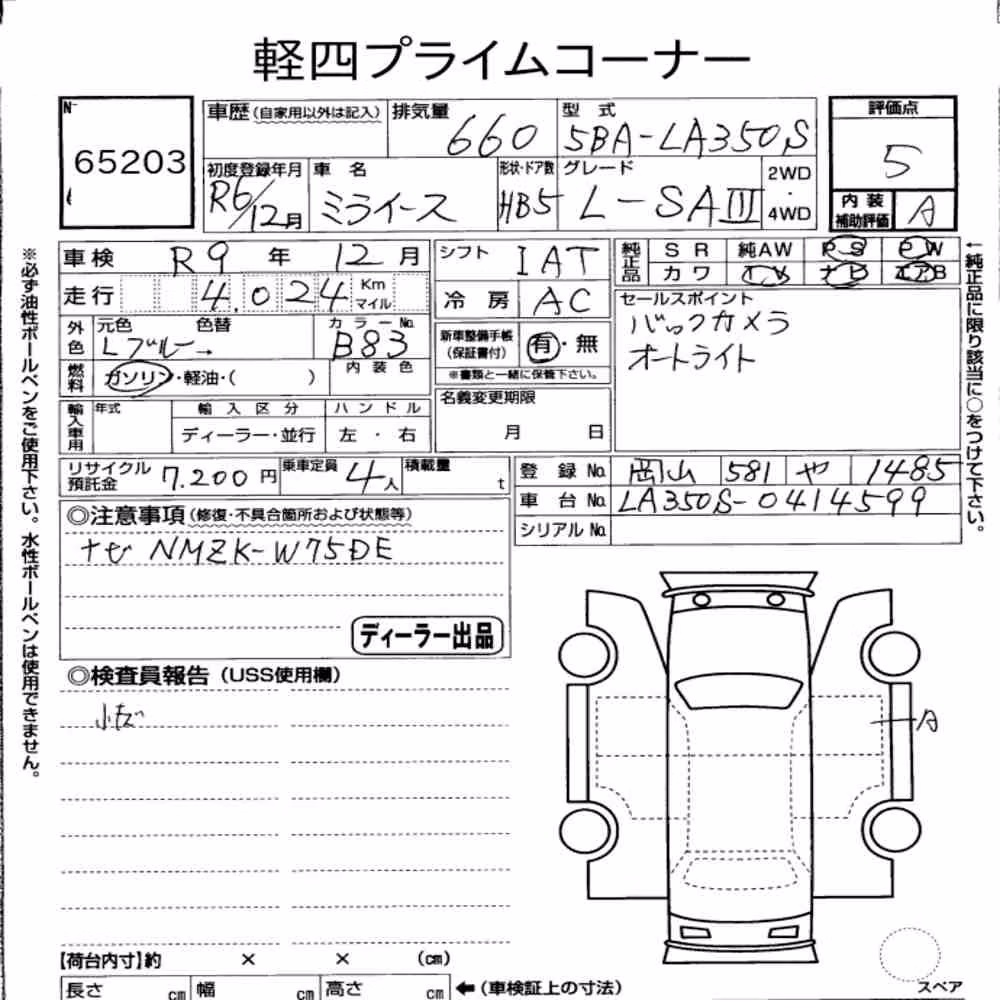 軽四プライムコーナー
No
65203
車歴(自家用以外は記入) 排気量 660 型式 5BA-LA350S
初度登録年月 R6/12月 車名 ミライース 形状・ドア数 HB5 グレード L-SAIII 2WD・4WD
評価点 5
内装補助評価 A
車検 R9年 12月 シフト IAT
走行 4.024 Km マイル 冷房 AC
外色 元色 Lブルー 色替 → カラーNo. B83
新車整備手帳(保証書付) 有・無
※書類と一緒に保管下さい。
燃料 ガソリン・軽油・( ) 内装色
輸入車用 年式 輸入区分 ハンドル
ディーラー・並行 左・右
名義変更期限
月 日
純正品 SR 純AW PS PW
カワ TV ナビ エアB
セールスポイント
バックカメラ
オートライト
リサイクル預託金 7.200円 乗車定員 4人 積載量 t
登録No. 岡山 581 や 1485
車台No. LA350S-0414599
シリアルNo.
◎注意事項(修復・不具合箇所および状態等)
ナビ NMZK-W75DE
ディーラー出品
◎検査員報告(USS使用欄)
A
【荷台内寸】約 × × (cm)
長さ cm 幅 cm 高さ cm ←(車検証上の寸法)
スペア
※必ず油性ボールペンをご使用下さい。水性ボールペンは使用できません。
←純正品に限り該当に○をつけて下さい。